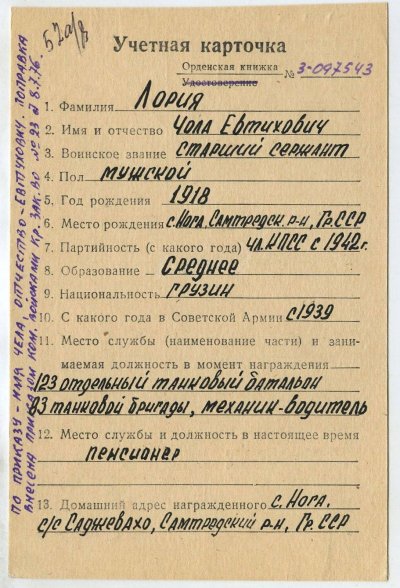 52а/в
Учетная карточка
Орденская книжка
Удостоверение № 3-097543
1. Фамилия Лория
2. Имя и отчество Чола Евтихович
3. Воинское звание старший сержант
4. Пол мужской
5. Год рождения 1918
6. Место рождения с. Нога, Самтредск. р-н, Гр. ССР
7. Партийность (с какого года) чл. КПСС с 1942 г.
8. Образование Среднее
9. Национальность грузин
10. С какого года в Советской Армии с 1939
11. Место службы (наименование части) и зани-
маемая должность в момент награждения
123 отдельный танковый батальон
83 танковой бригады, механик-водитель
12. Место службы и должность в настоящее время
пенсионер
13. Домашний адрес награжденного с. Нога,
с/с Саджевахо, Самтредский р-н, Гр. ССР
По приказу – имя Чела, отчество – Евтухович. Поправка
внесена приказом ком. войсками Кр. ЗакВО № 23 от 8.7.76.